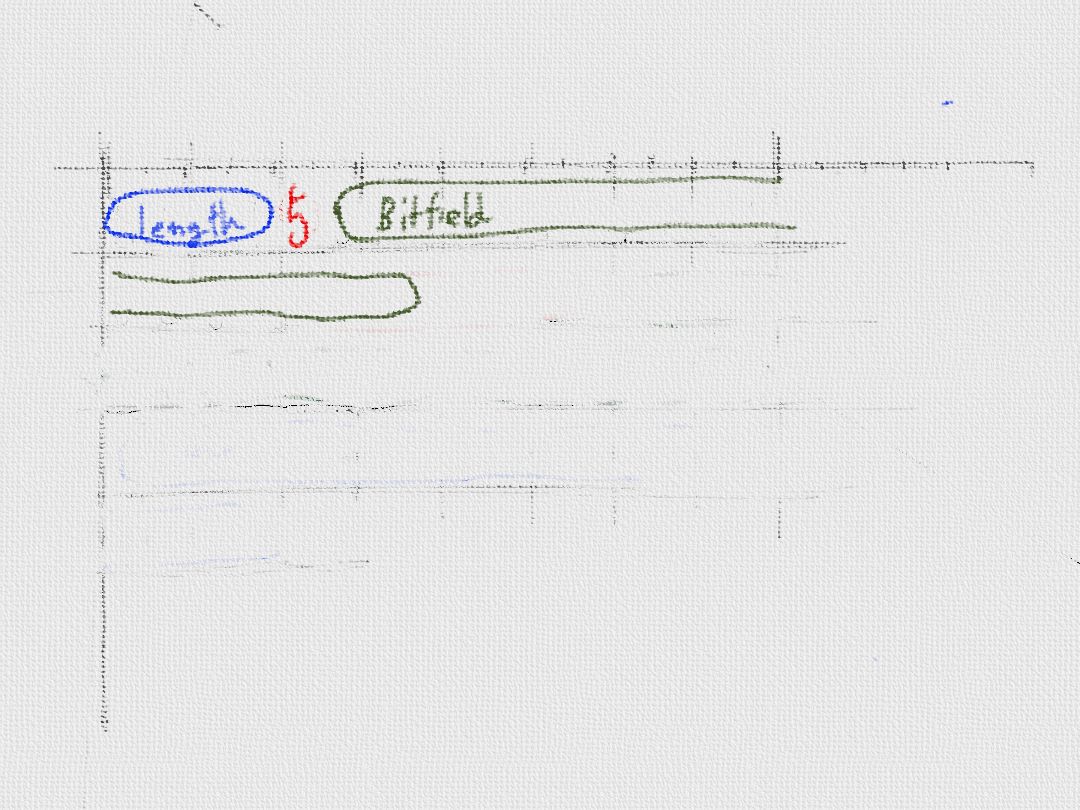 Length 5 Bitfield